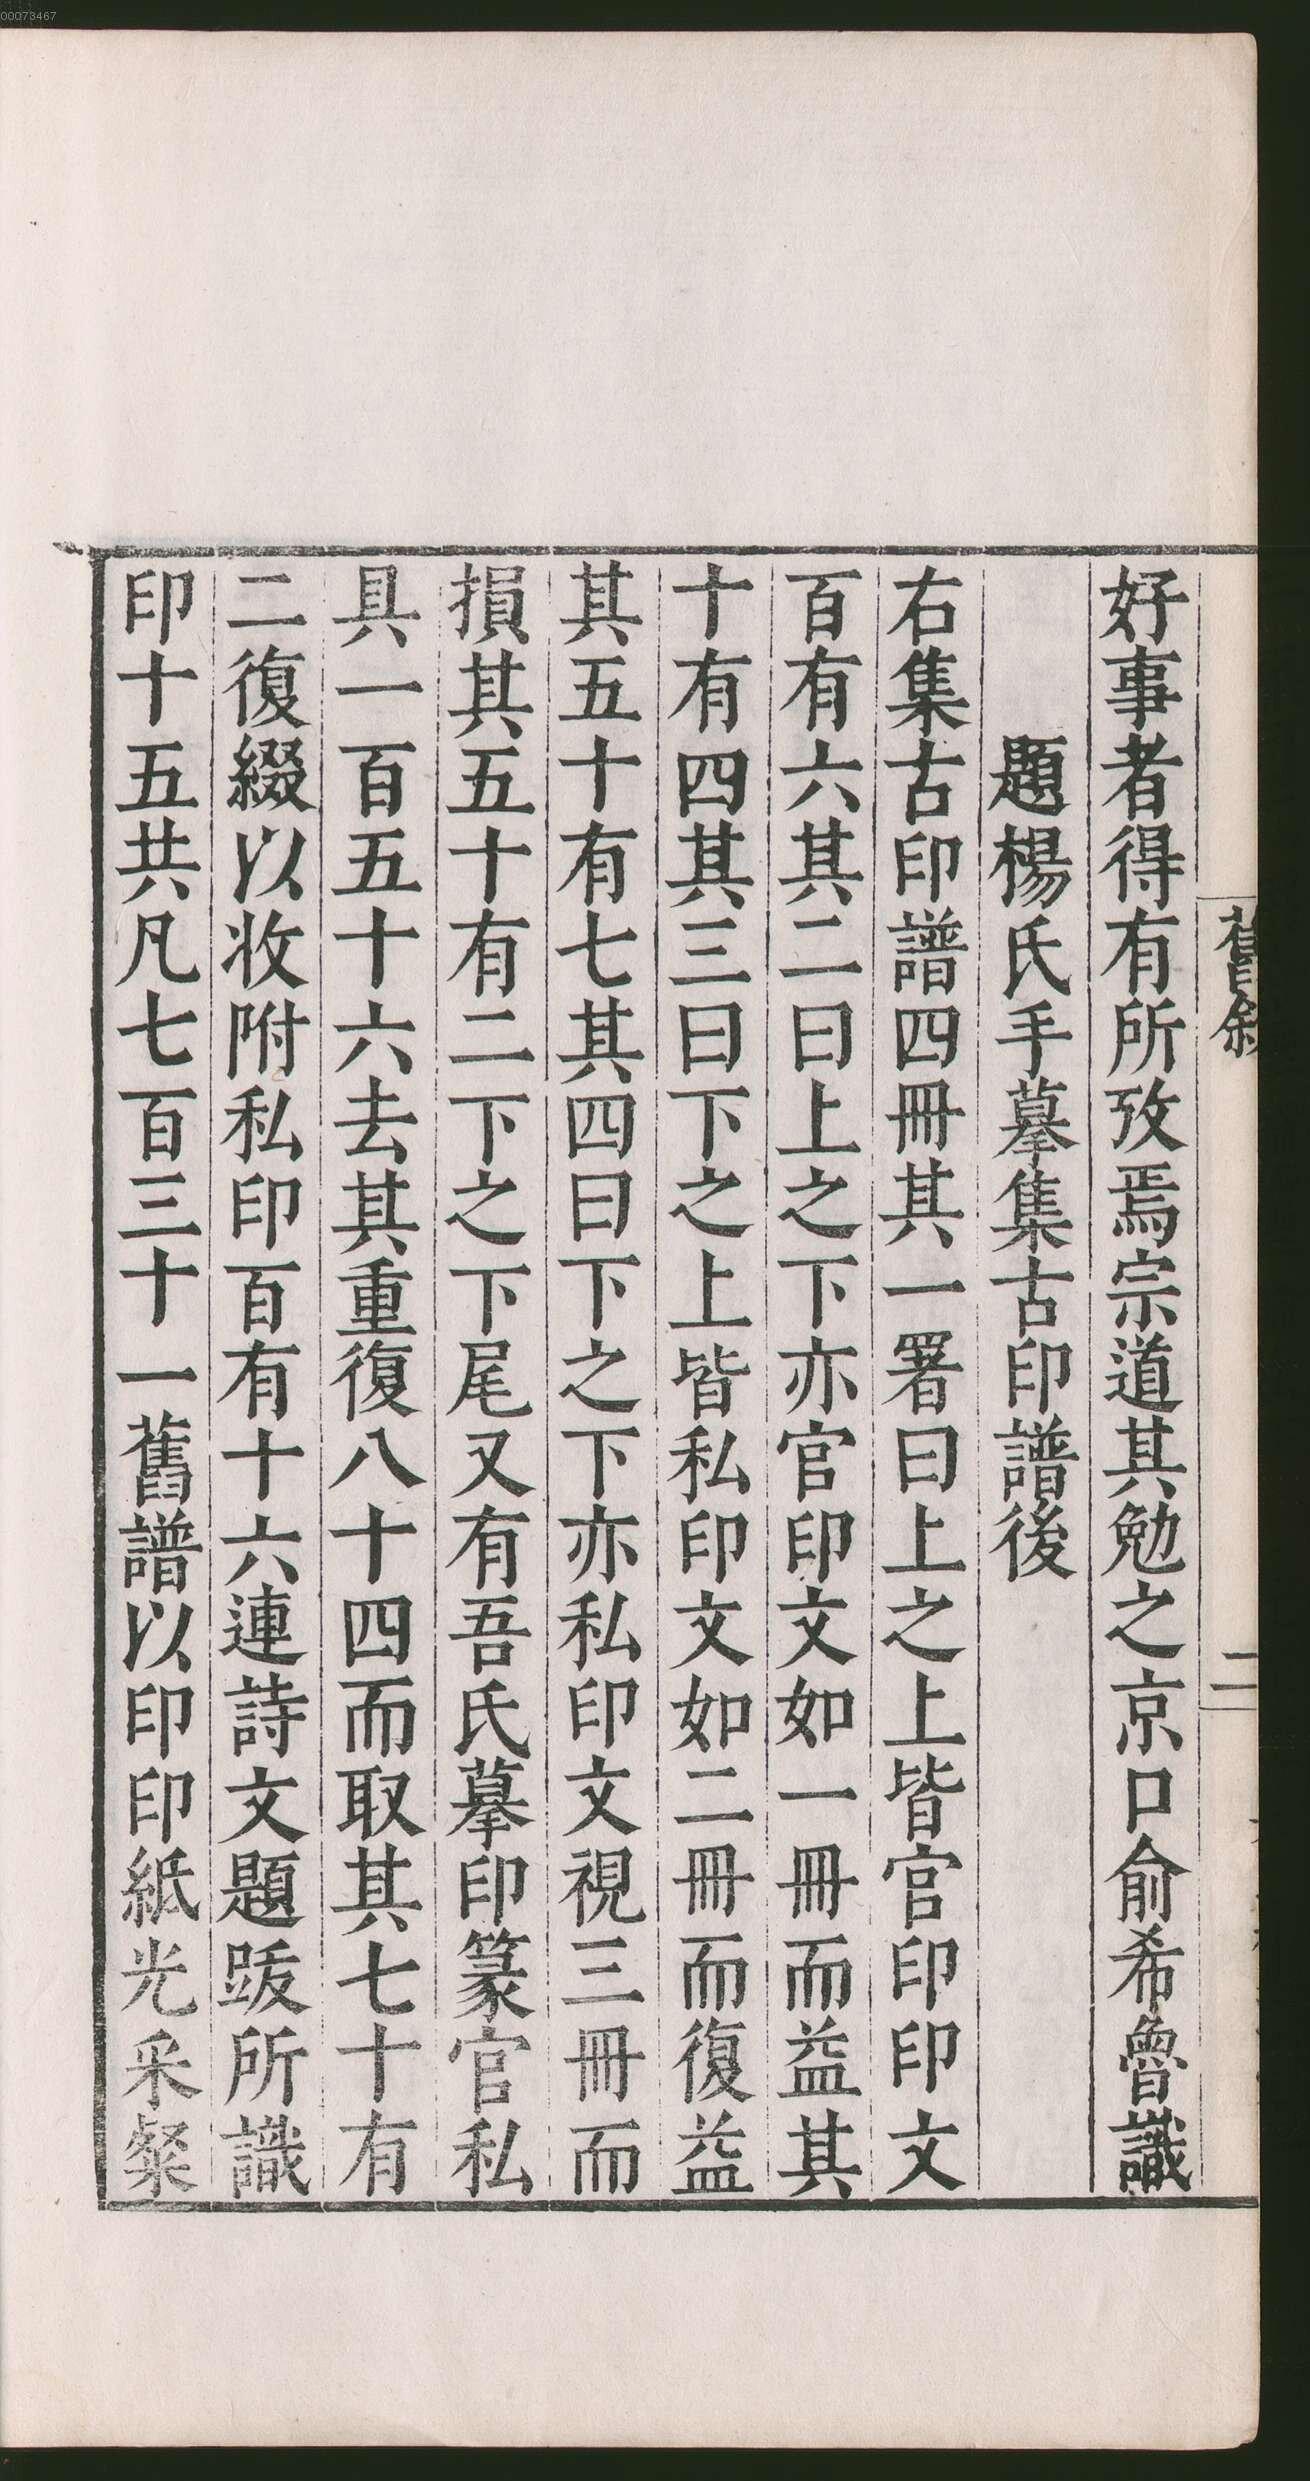 00073467
舊敘
二
好事者得有所攷焉宗道其勉之京口俞希魯識
題楊氏手摹集古印譜後
右集古印譜四冊其一署曰上之上皆官印印文
百有六其二曰上之下亦官印文如一冊而益其
十有四其三曰下之上皆私印文如二冊而復益
其五十有七其四曰下之下亦私印文視三冊而
損其五十有二下之下尾又有吾氏摹印篆官私
具一百五十六去其重復八十四而取其七十有
二復綴以收附私印百有十六連詩文題跋所識
印十五共凡七百三十一舊譜以印印紙光采粲